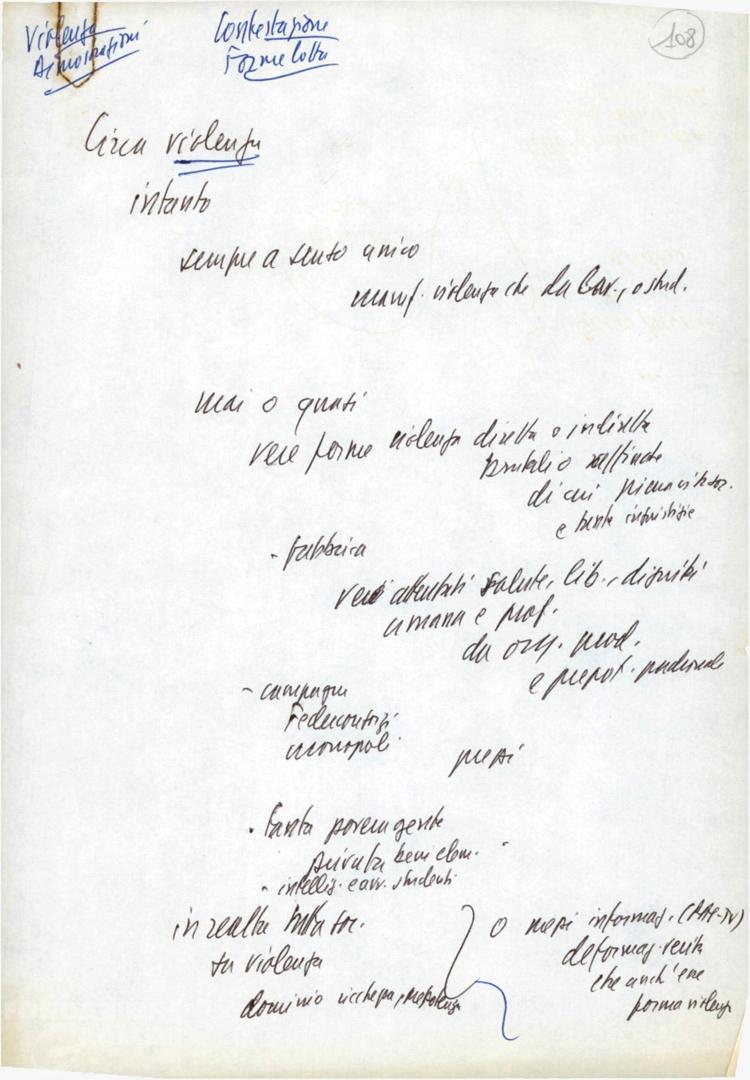 Violenza
Dimostrazioni
Contestazione
Forme lotta
108
Circa violenza
intanto
sempre a senso unico
manif. violenza che da lav., o stud.
mai o quasi
vere forme violenza diretta o indiretta
brutali o raffinate
di cui piena vita
e tante ingiustizie
- fabbrica
veri attentati salute, lib., dignità
umana e prof.
da org. prod.
e prepot. padronale
- campagna
Federconsorzi
monopoli
prezzi
- tanta povera gente
privata beni elem.
- intellig. e avv. studenti
in realtà tutta soc.
su violenza
dominio ricchezza, prepotenza
o mezzi informaz. (RAI-TV)
deformaz. verità
che anch'essa
forma violenza